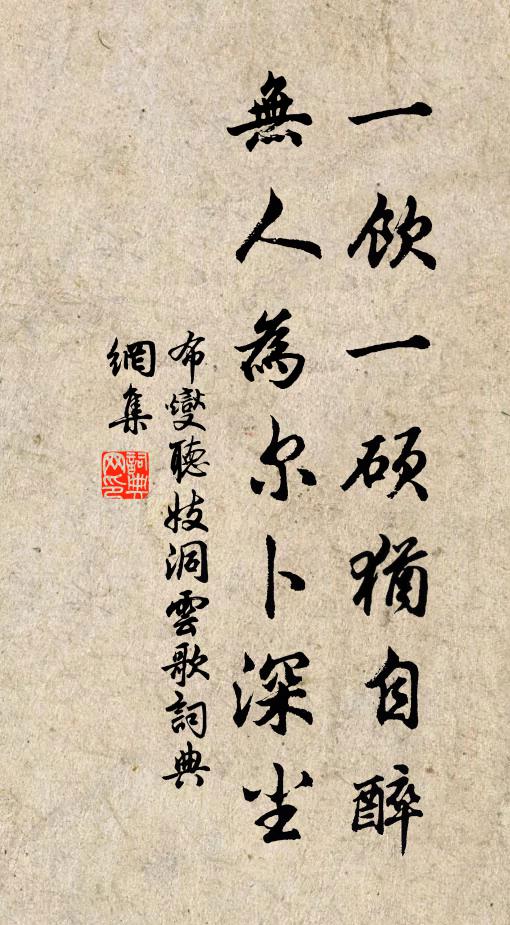 一飲一碩猶自醉
無人為尔卜深尘
布燮聽妓洞雲歌詞典
網集
詞典
网印